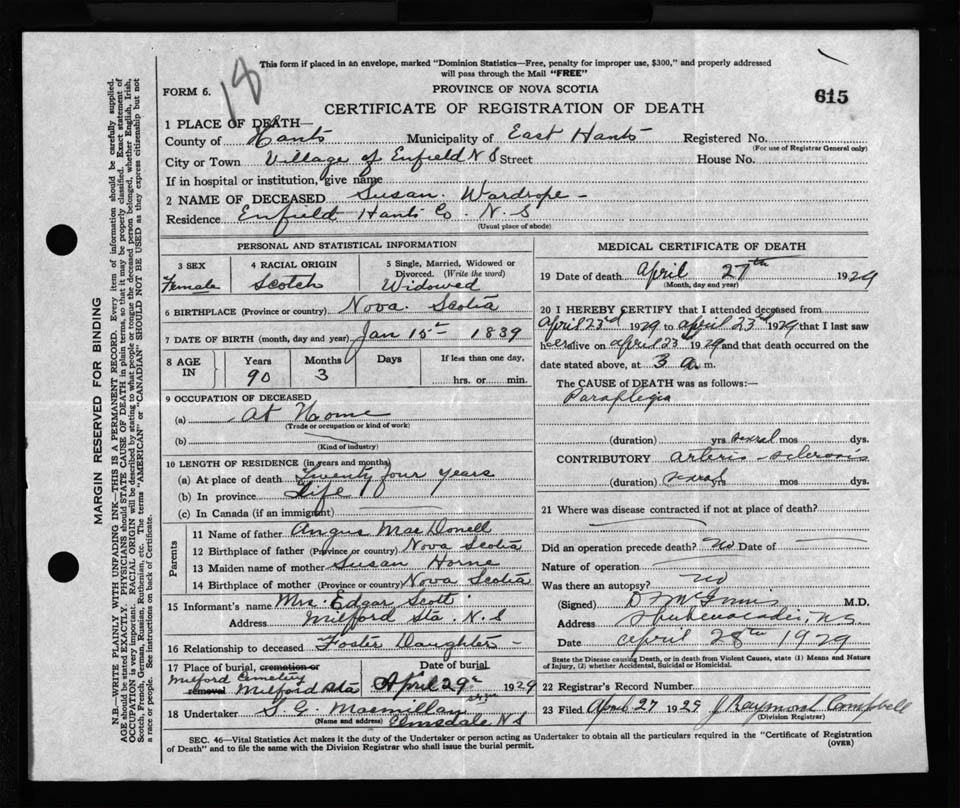 18
This form if placed in an envelope, marked "Dominion Statistics—Free, penalty for improper use, $300," and properly addressed
will pass through the Mail "FREE"
FORM 6.
PROVINCE OF NOVA SCOTIA
615
CERTIFICATE OF REGISTRATION OF DEATH
1 PLACE OF DEATH—
County of Hants Municipality of East Hants Registered No.
(For use of Registrar General only)
City or Town Village of Enfield N S Street House No.
If in hospital or institution, give name
2 NAME OF DECEASED Susan. Wardrope -
Residence Enfield Hants Co. N. S
(Usual place of abode)
PERSONAL AND STATISTICAL INFORMATION
3 SEX
Female
4 RACIAL ORIGIN
Scotch
5 Single, Married, Widowed or
Divorced. (Write the word)
Widowed
6 BIRTHPLACE (Province or country) Nova. Scotia
7 DATE OF BIRTH (month, day and year) Jan 15 1839
8 AGE
IN
Years
90
Months
3
Days
If less than one day,
hrs. or min.
9 OCCUPATION OF DECEASED
(a) At Home
(Trade or occupation or kind of work)
(b)
(Kind of industry)
10 LENGTH OF RESIDENCE (in years and months)
(a) At place of death Twenty four years
(b) In province Life
(c) In Canada (if an immigrant)
Parents
11 Name of father Angus MacDonell
12 Birthplace of father (Province or country) Nova Scotia
13 Maiden name of mother Susan Horne
14 Birthplace of mother (Province or country) Nova Scotia
15 Informant's name Mrs. Edgar Scott
Address Milford Sta. N. S
16 Relationship to deceased Foster Daughter -
17 Place of burial, cremation or
removal
Milford Cemetery
Milford Sta
Date of burial
April 29 1929
18 Undertaker S. G. Macmillan
(Name and address) Elmsdale N S
MEDICAL CERTIFICATE OF DEATH
19 Date of death April 27th 1929
(Month, day and year)
20 I HEREBY CERTIFY that I attended deceased from
April 23d 1929 to April 23d 1929 that I last saw
her alive on April 23d 1929 and that death occurred on the
date stated above, at 3 a. m.
The CAUSE OF DEATH was as follows:—
Paraplegia
(duration) yrs several mos dys.
CONTRIBUTORY Arterio-sclerosis
(duration) several yrs mos dys.
21 Where was disease contracted if not at place of death?
Did an operation precede death? No Date of
Nature of operation
Was there an autopsy? no
(Signed) M.D.
Address Shubenacadie, NS
Date April 28th 1929
State the Disease causing Death, or in death from Violent Causes, state (1) Means and Nature
of Injury, (2) whether Accidental, Suicidal or Homicidal.
22 Registrar's Record Number
23 Filed April 27 1929 J Raymond Campbell
(Division Registrar)
SEC. 46—Vital Statistics Act makes it the duty of the Undertaker or person acting as Undertaker to obtain all the particulars required in the "Certificate of Registration
of Death" and to file the same with the Division Registrar who shall issue the burial permit.
(OVER)
MARGIN RESERVED FOR BINDING
N.B.—WRITE PLAINLY WITH UNFADING INK—THIS IS A PERMANENT RECORD. Every item of information should be carefully supplied.
AGE should be stated EXACTLY. PHYSICIANS should STATE CAUSE OF DEATH in plain terms, so that it may be properly classified. Exact statement of
OCCUPATION is very important. RACIAL ORIGIN will be described by stating to what people or tongue the deceased person belonged, whether English, Irish,
Scotch, French, German, Russian, Ruthenian, etc. The terms "AMERICAN" or "CANADIAN" SHOULD NOT BE USED as they express citizenship but not
a race or people. See instructions on back of Certificate.